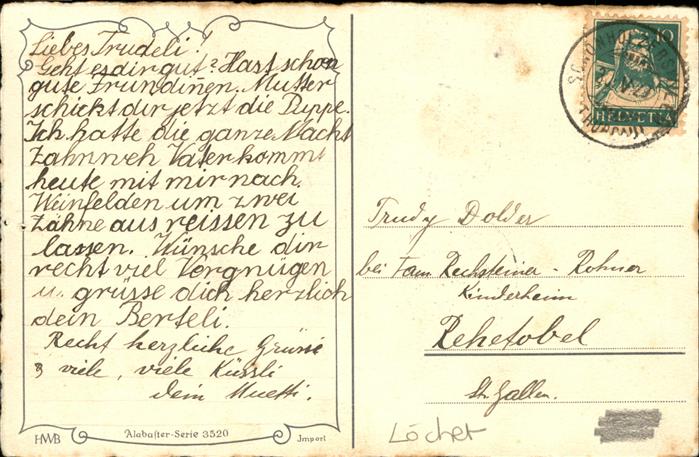 Liebes Trudeli!
Geht es dir gut? Hast schon
gute Frundinen. Mutter
schickt dir jetzt die Puppe.
Ich hatte die ganze Nacht
Zahnweh Vater kommt
heute mit mir nach.
Weinfelden um zwei
Zähne aus reissen zu
lassen. Wünsche dir
recht viel Vergnügen
u. grüsse dich herzlich
dein Berteli.
Recht herzliche Grüsse
& viele, viele Küssli
Dein Muetti.
HWB
Alabaster-Serie 3520
Import
10
HELVETIA
Trudy Dolder
bei Fam. Rechsteiner - Rohner
Kinderheim
Rehetobel
St. Gallen.
Löcher